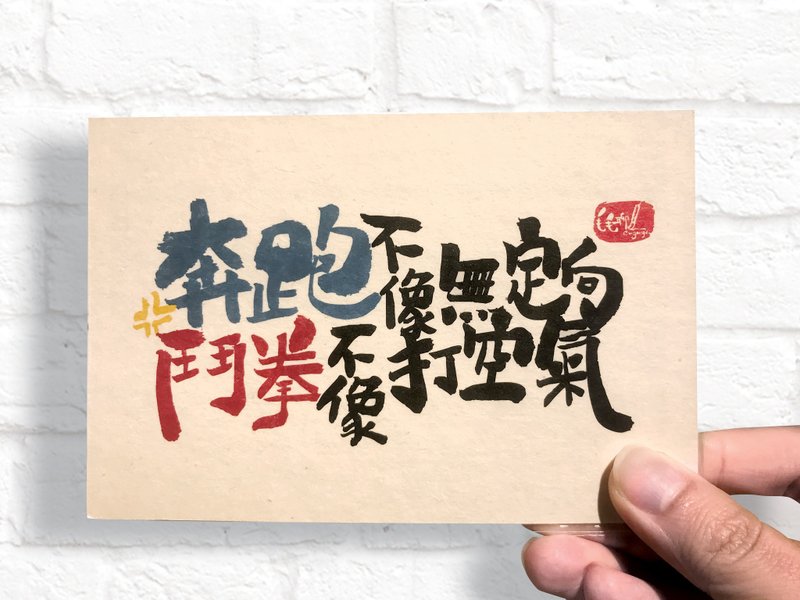 奔跑不像無定向
鬥拳不像打空氣